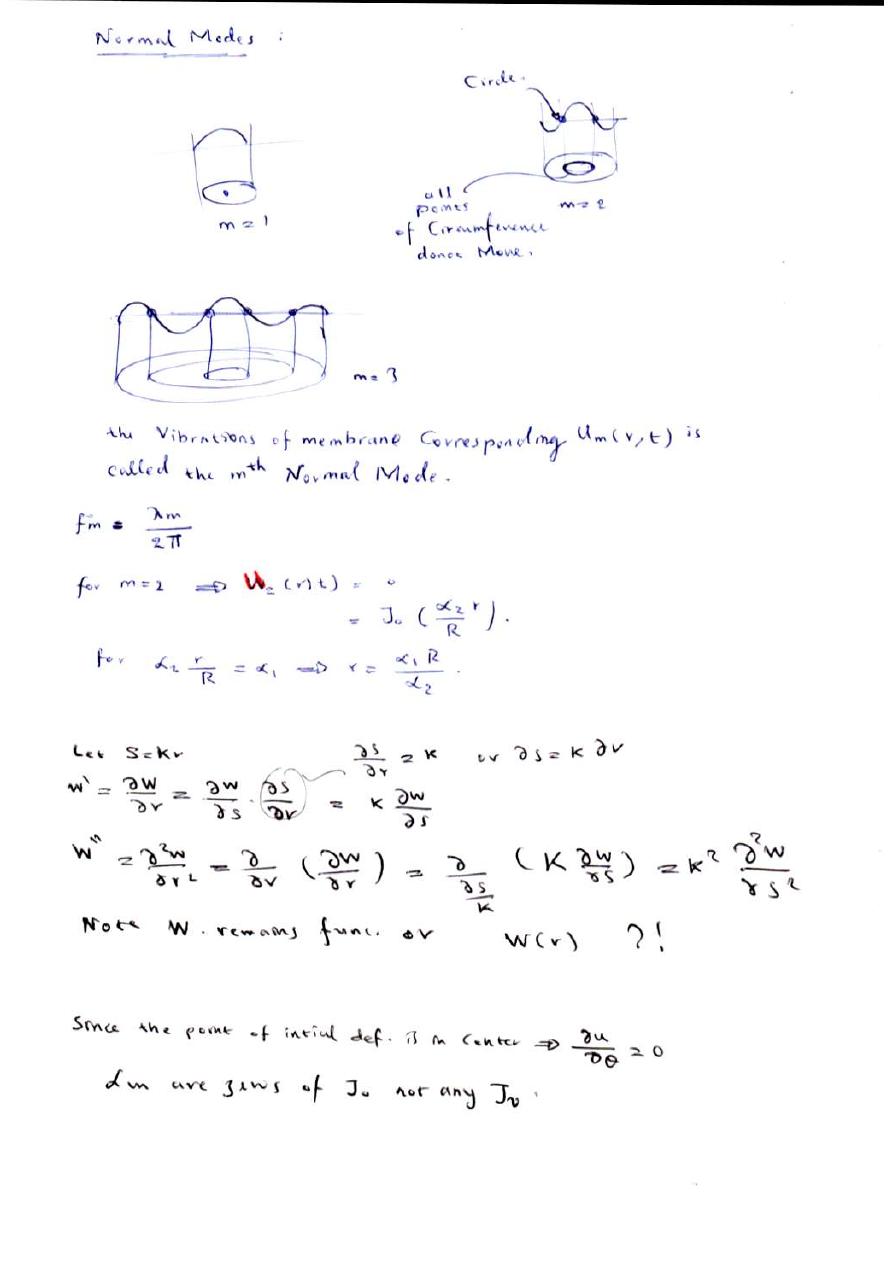 Normal Modes :
Circle.
m = 1
all
points
m = 2
of Circumference
donot Move.
m = 3
the Vibrations of membrane Corresponding Um(r,t) is
called the mth Normal Mode.
fm = λm / 2π
for m=2 ⇒ U2 (r,t) = 0
= J0 ( α2 r / R ).
for α2 r/R = α1 ⇒ r = α1 R / α2 .
Let S=Kr ∂s/∂r = K or ∂s = K ∂r
w' = ∂w/∂r = ∂w/∂s . ∂s/∂r = K ∂w/∂s
w'' = ∂²w/∂r² = ∂/∂r ( ∂w/∂r ) = ∂/(∂s/K) ( K ∂w/∂s ) = K² ∂²w/∂s²
Note W. remains func. or W(r) ?!
Since the point of intial def. is in Center ⇒ ∂u/∂θ = 0
αm are zeros of J0 not any Jν .